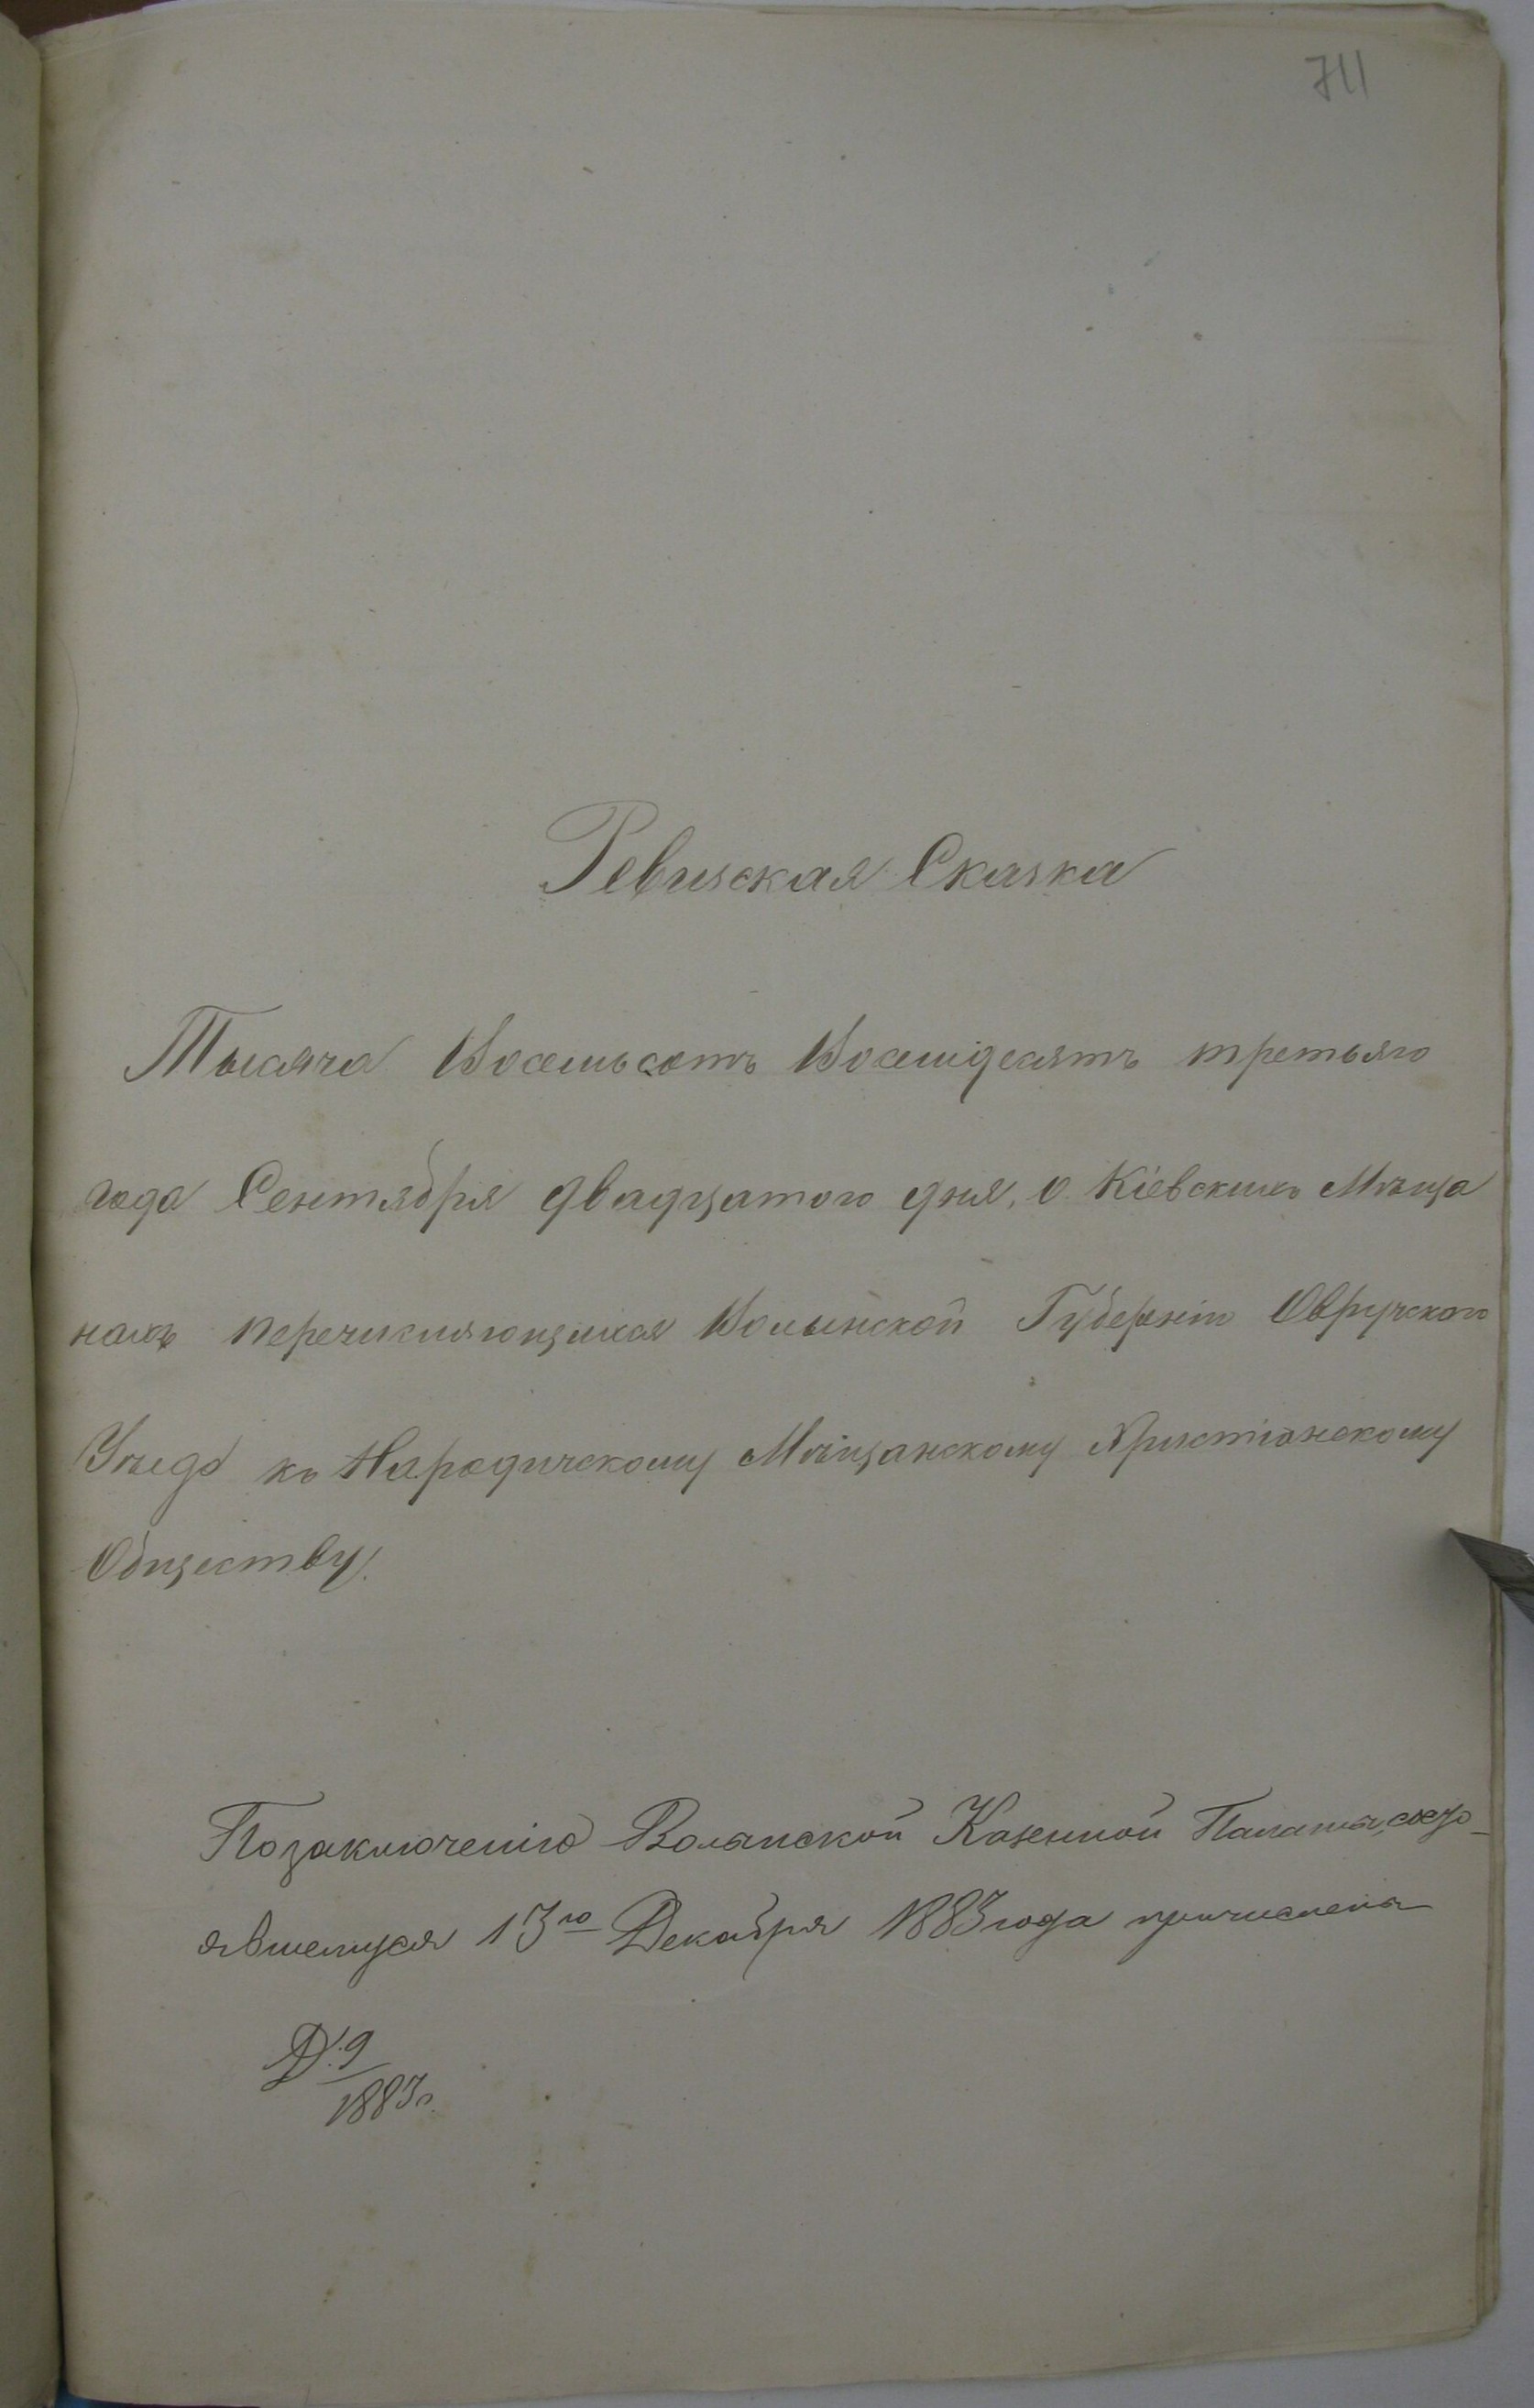 711
Ревизская Сказка
Тысяча Восемьсотъ Восемідесятъ третьяго
года Сентября двадцатого дня, о Кіевскихъ Мѣща
нахъ перечисляющихся Волынской Губерніи Овручского
Уѣзда къ Народичскому Мѣщанскому Христіанскому
Обществу.
По заключенію Волынской Казенной Палаты, состо-
явшемуся 13го Декабря 1883 года причислены
Д. 9
1883 г.